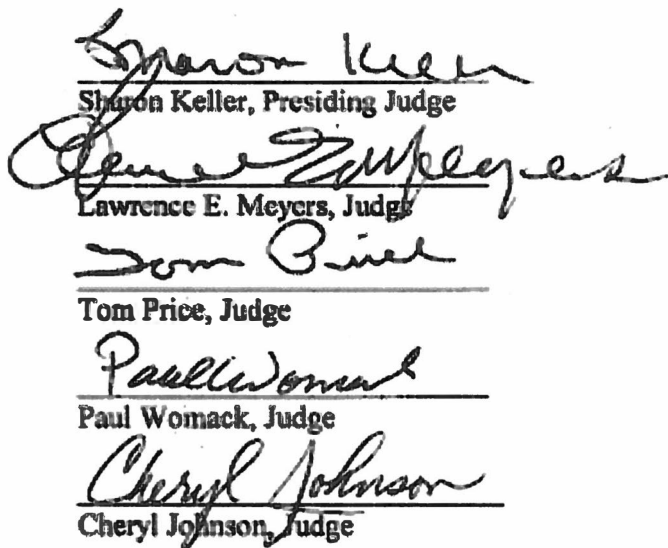 Sharon Keller
Sharon Keller, Presiding Judge
Lawrence E. Meyers
Lawrence E. Meyers, Judge
Tom Price
Tom Price, Judge
Paul Womack
Paul Womack, Judge
Cheryl Johnson
Cheryl Johnson, Judge